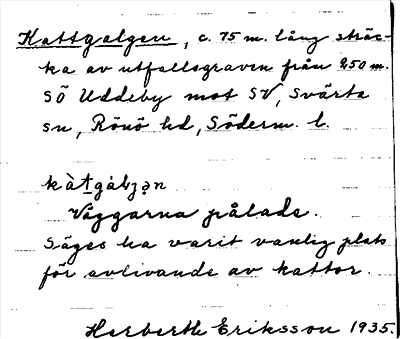 Kattgalgen, c. 75 m. lång sträc-
ka av utfallsgraven från 250 m.
SÖ Uddeby mot SV, Svärta
sn, Rönö hd, Söderm. l.
kàt̲gál̨ʒə̣n
Väggarna pålade.
Säges ha varit vanlig plats
för avlivande av kattor.
Herberth Eriksson 1935.